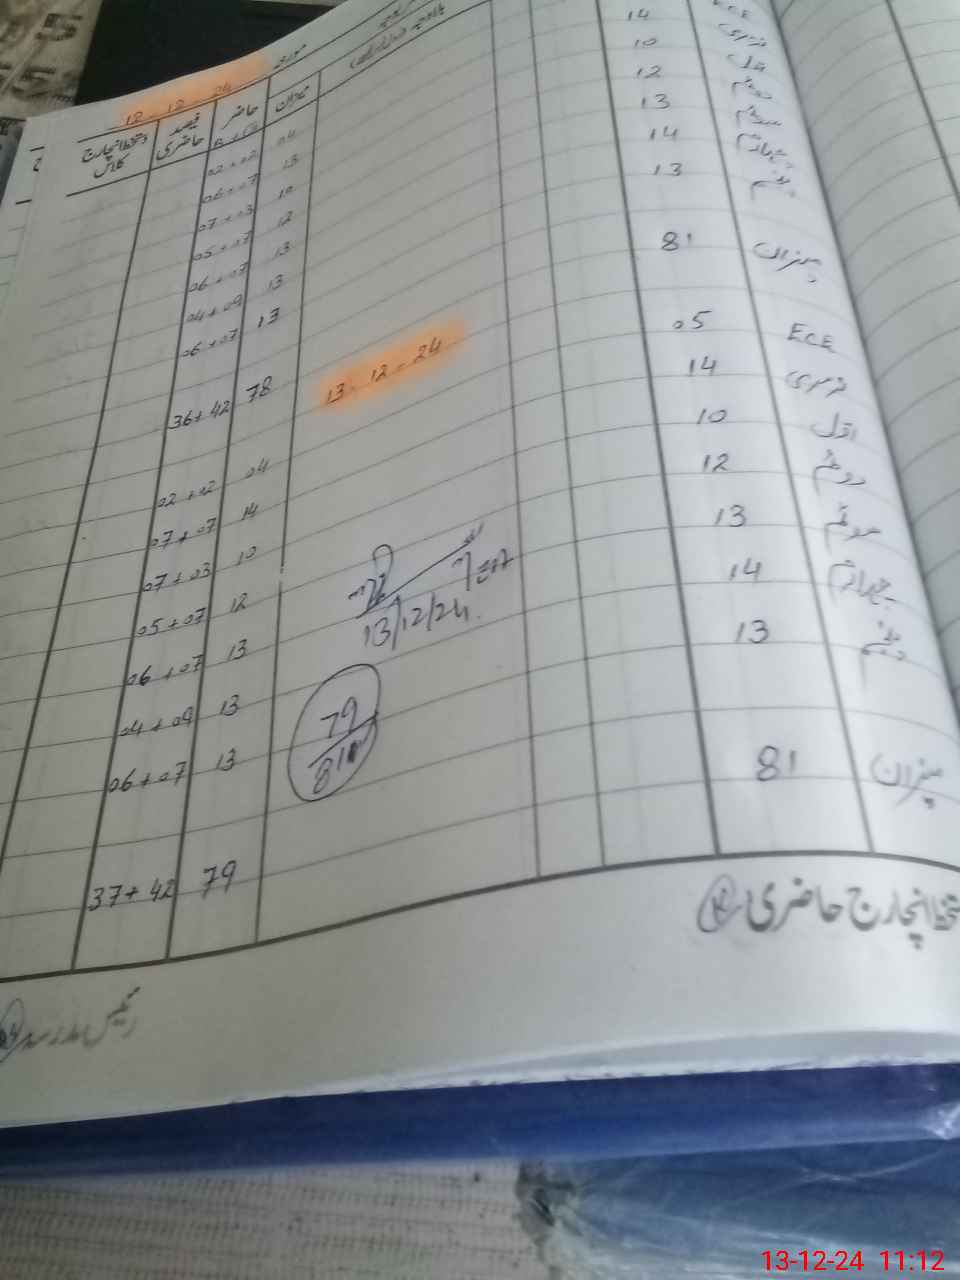 12-12-24
میزان
حاضر
فیصد حاضری
دستخط انچارج کلاس
ECE 04 02+02
نرسری 14 13 06+07
اول 10 10 07+03
دوئم 12 12 05+07
سوئم 13 13 06+07
چہارم 14 13 04+09
پنجم 13 13 06+07
میزان 81 78 36+42
13-12-24
ECE 05 04 02+02
نرسری 14 14 07+07
اول 10 10 07+03
دوئم 12 12 05+07
سوئم 13 13 06+07
چہارم 14 13 04+09
پنجم 13 13 06+07
13/12/24.
79
81
میزان 81 79 37+42
دستخط انچارج حاضری
رئیس مدرسہ
13-12-24 11:12